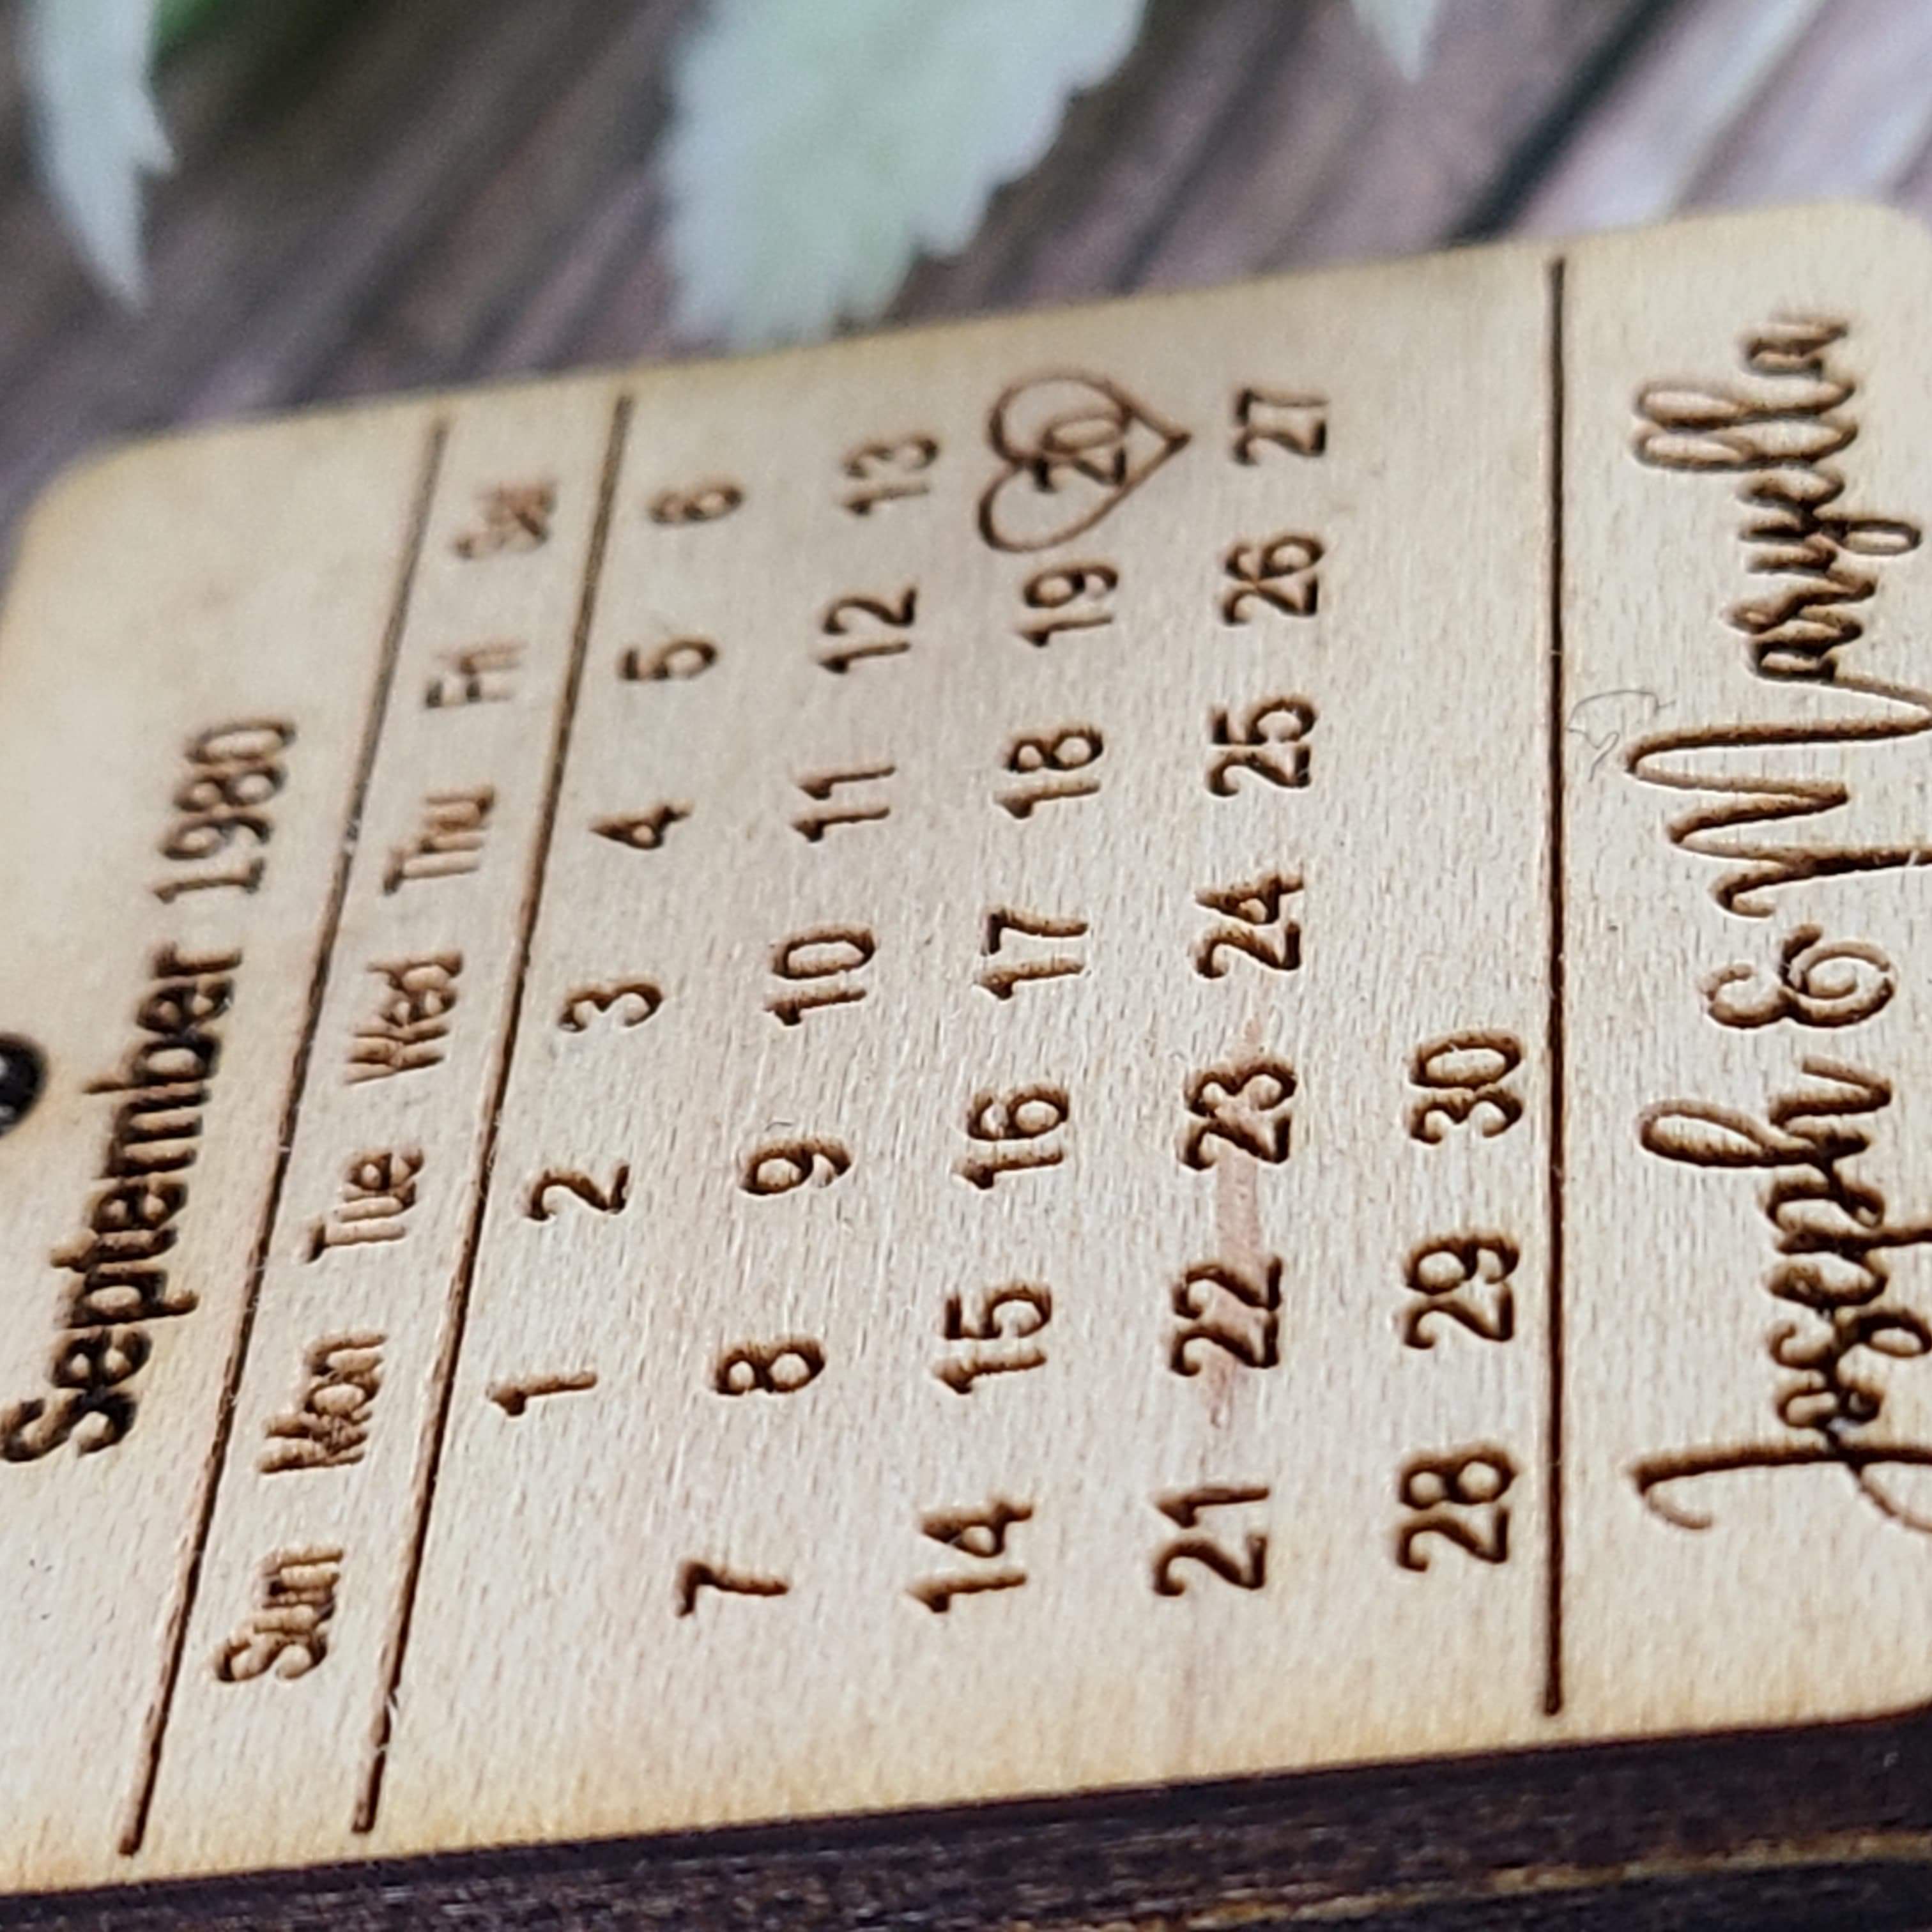 September 1980
Sun Mon Tue Wed Thu Fri Sat
1 2 3 4 5 6
7 8 9 10 11 12 13
14 15 16 17 18 19 20
21 22 23 24 25 26 27
28 29 30
Joseph & Maryella